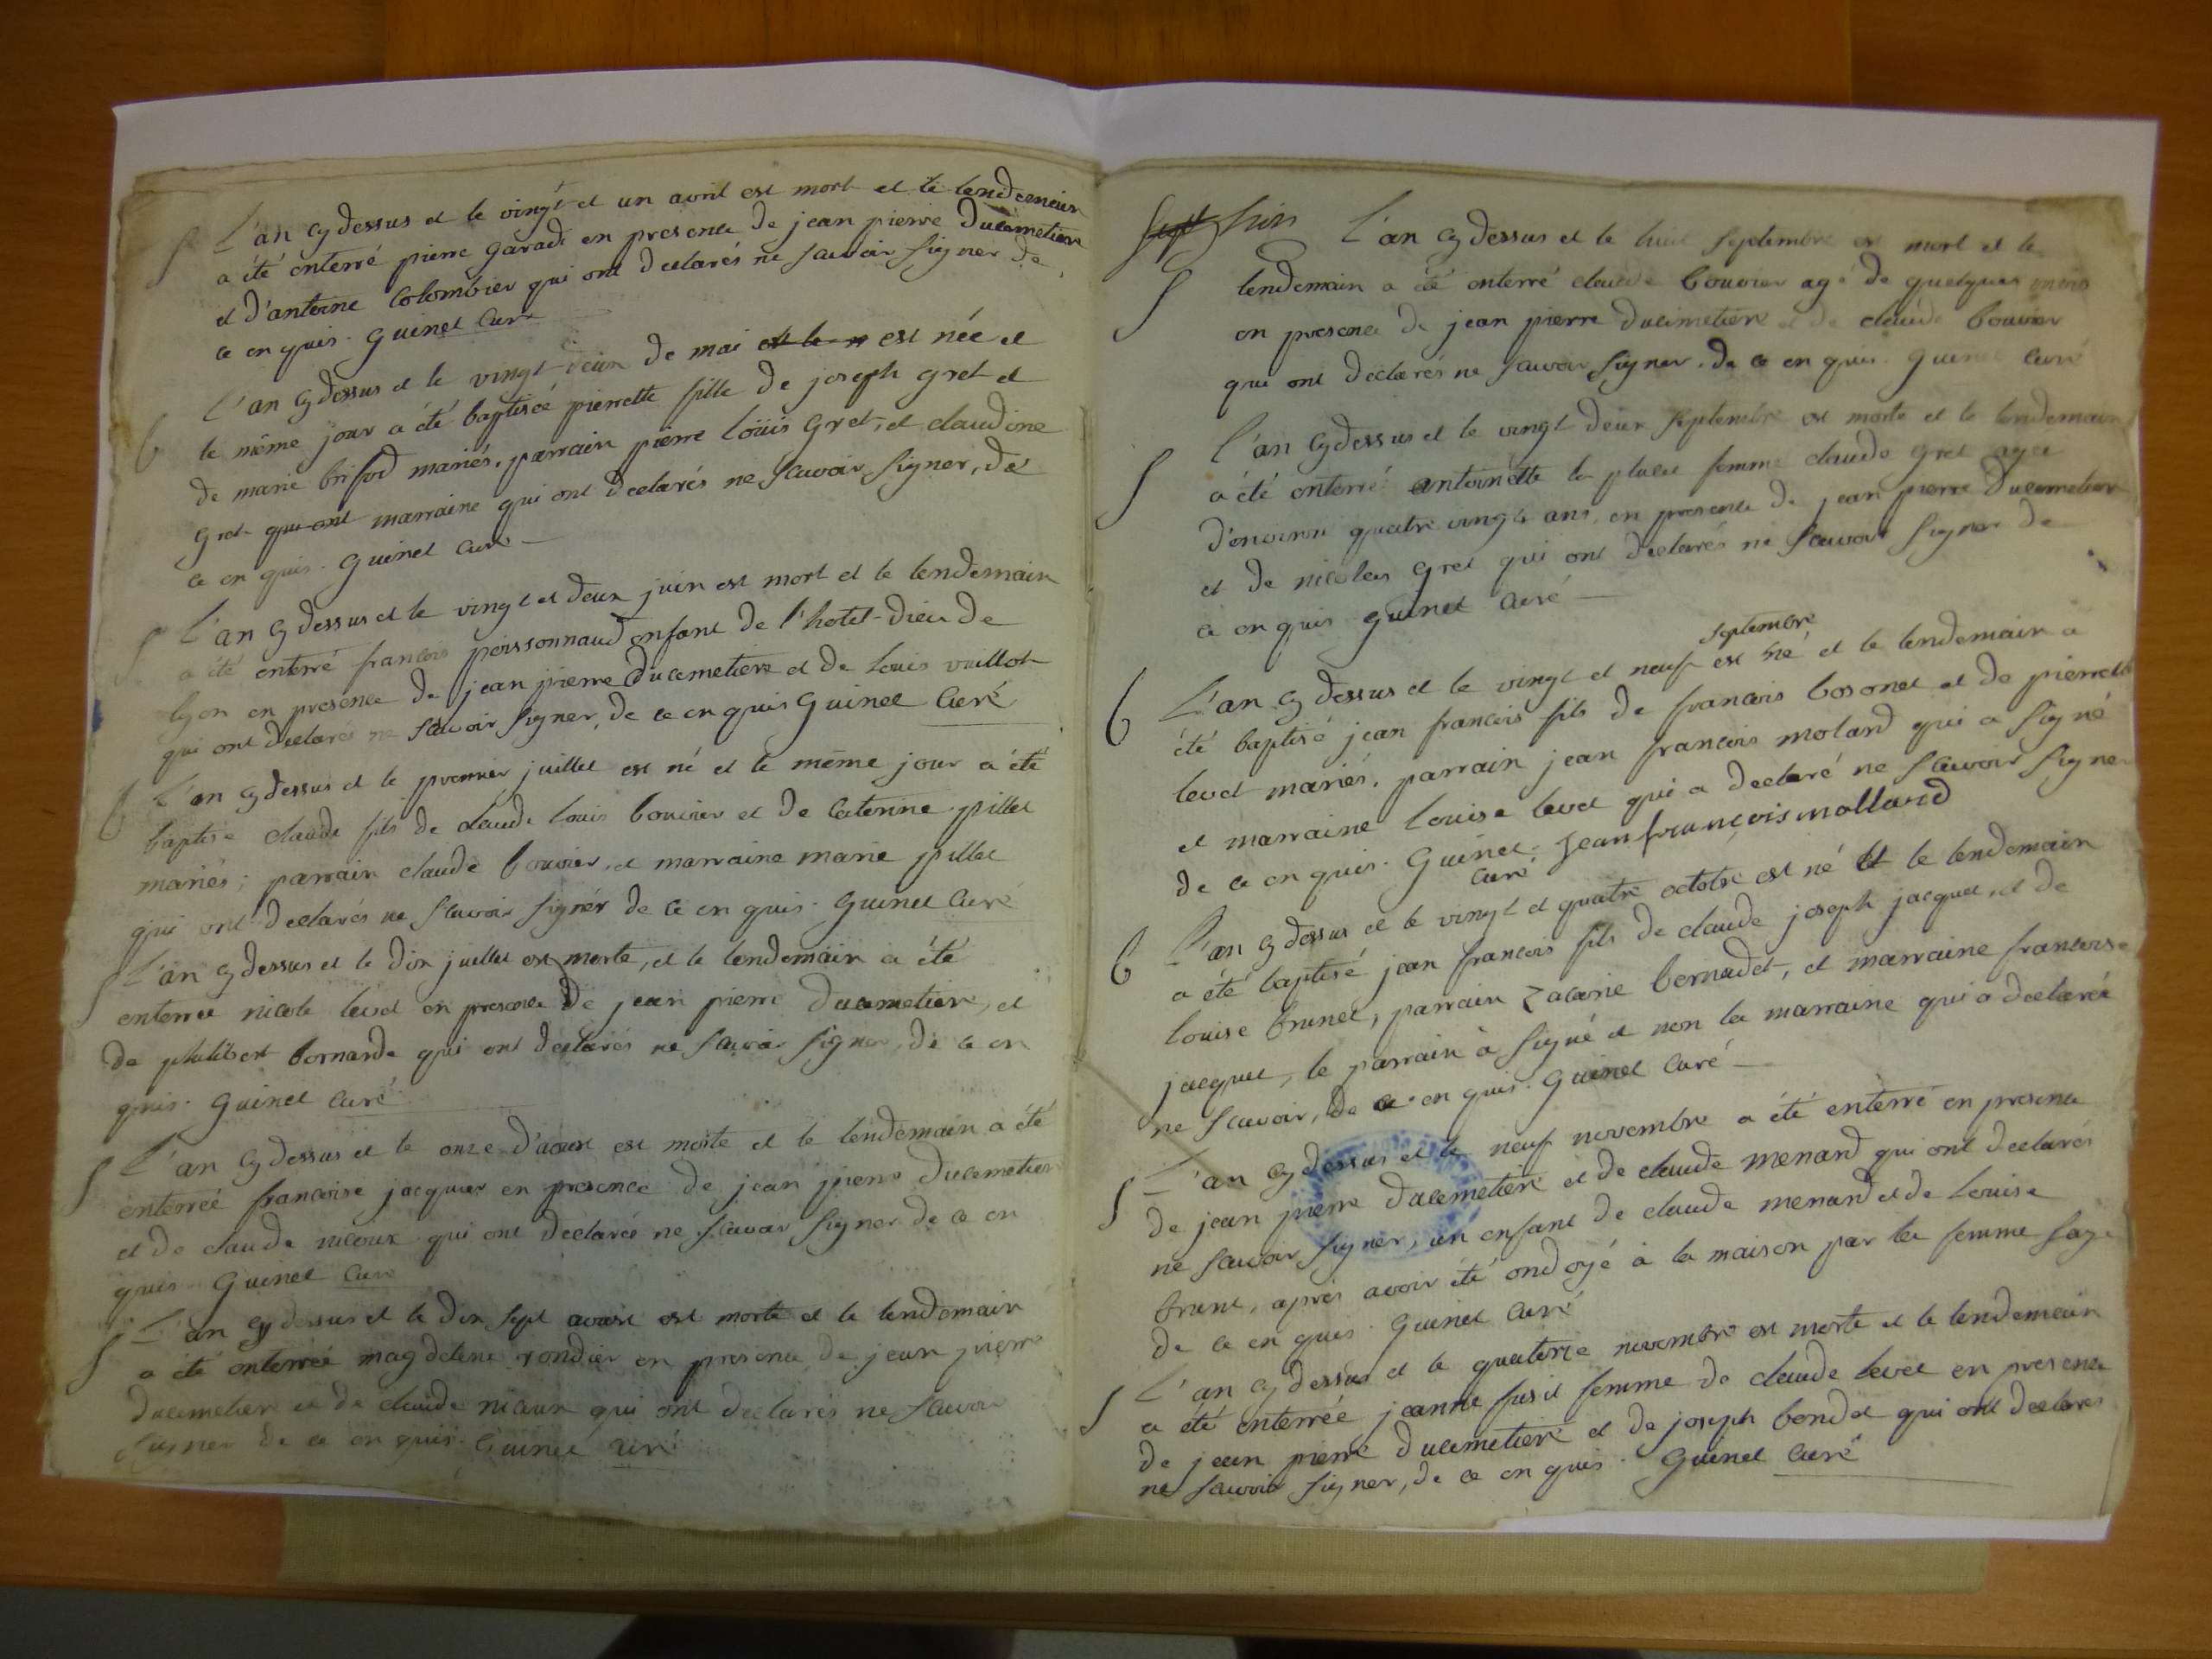 S L'an cy dessus et le vingt et un avril est mort et le lendemain
a été enterré pierre garade en presence de jean pierre ducimetiere
et d'antoine Colombier qui ont declarés ne scavoir signer de
ce enquis. Guinet Curé
b L'an cy dessus et le vingt deux de mai est née et
le même jour a été baptiséé pierrette fille de joseph gret et
de marie brifod mariés, parrain pierre loüis Gret, et claudine
Gret qui ont marraine qui ont declarés ne scavoir signer, de
ce en quis. Guinet Curé
S L'an cy dessus et le vingt et deux juin est mort et le lendemain
a été enterré francois poissonnaud enfant de l'hotel-dieu de
lyon en presence de jean pierre Ducimetiere et de louis vuillot
qui ont declarés ne scavoir signer, de ce en quis Guinet Curé
b L'an cy dessus et le premier juillet est né et le même jour a été
baptisé claude fils de claude louis bouvier et de Caterine pillet
mariés; parrain claude bouvier, et marraine marie pillet
qui ont declarés ne scavoir signér de ce en quis. Guinet Curé
S L'an cy dessus et le dix juillet est morte, et le lendemain a été
enterreé nicole levet en presence de jean pierre ducimetiere, et
de philibert bornarde qui ont declarés ne scavoir signer, de ce en
quis. Guinet Curé
S L'an cy dessus et le onze d'aoust est morte et le lendemain a été
enterreé francoise jacquier en presence de jean pierre ducimetiere
et de claude nicoux qui ont declarés ne scavoir signer de ce en
quis Guinet Curé
S L'an cy dessus et le dix sept aoust est morte et le lendemain
a été enterreé magdelene rondier en presence de jean pierre
ducimetiere et de claude nicoux qui ont declarés ne scavoir
signer de ce en quis. Guinet Curé
L'an cy dessus et le huit septembre est mort et le
S lendemain a été enterré claude bouvier agé de quelques mois
en presence de jean pierre ducimetiere et de claude bouvier
qui ont declarés ne scavoir signer. de ce en quis. Guinet Curé
L'an cy dessus et le vingt deux septembre est morte et le lendemain
S a été enterré antoinette la place femme claude gret ageé
d'environ quatre vingts ans, en presence de jean pierre ducimetiere
et de nicolas gret qui ont declarés ne scavoir signer de
ce en quis guinet Curé
septembre
b L'an cy dessus et le vingt et neuf est né et le lendemain a
été baptisé jean francois fils de francois bosonet et de pierrette
levet mariés, parrain jean francois molard qui a signé
et marraine louise levet qui a declaré ne scavoir signer
de ce en quis. Guinet. Jean françois molland
Curé
b L'an cy dessus et le vingt et quatre octobre est né et le lendemain
a été baptisé jean francois fils de claude joseph jacquet, et de
louise brunet, parrain Zacarie bernadet, et marraine francoise
jacquet, le parrain à signé et non la marraine qui a declareé
ne scavoir, de ce en quis. Guinet Curé
S L'an cy dessus et le neuf novembre a été enterré en presence
de jean pierre ducimetiere et de claude menard qui ont declarés
ne scavoir signer, un enfant de claude menard et de louise
brunet, après avoir été ondoyé à la maison par la femme sage
de ce en quis. Guinet Curé
S L'an cy dessus et le quatorze novembre est morte et le lendemain
a été enterrée jeanne fusil femme de claude levet en presence
de jean pierre ducimetiere et de joseph bondet qui ont declarés
ne scavoir signer, de ce en quis. Guinet Curé